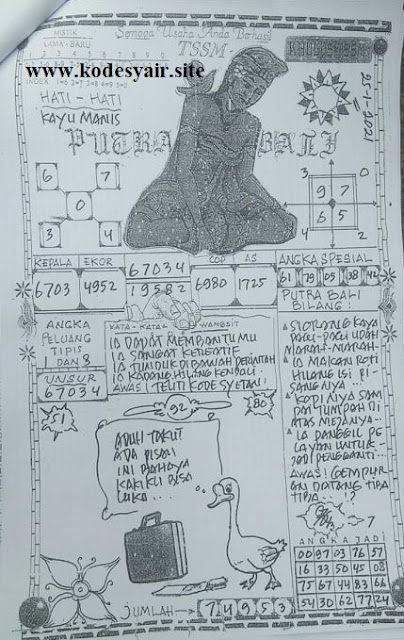 MISTIK
LAMA - BARU
Semoga Usaha Anda Berhasil
TSSM
www.kodesyair.site
HATI - HATI
KAYU MANIS
25-1-2021
PUTRA BALI
6 7
0
3 4
3 0
9 7
6 5
4 2
KEPALA EKOR
6703 4952
67034
19582
COP AS
6980 1725
ANGKA SPESIAL
61 79 05 38 42
PUTRA BALI
BILANG :
ANGKA
PELUANG
TIPIS
1 DAN 8
UNSUR
67034
KATA - KATA WANGSIT
IA DAPAT MEMBANTUMU
IA SANGAT KREATIF
IA TUNDUK DIBAWAH PERINTAH
IA KADANG HILANG KENDALI
AWAS! TELITI KODE SYETAN!
SEORANG KAYA
PAGI-PAGI UDAH
MARAH-MARAH
IA MAKAN ROTI
HILANG ISI PI-
SANGNYA ...
KOPINYA SAM
PAI TUMPAH DI
ATAS MEJANYA -
IA PANGGIL PE
LAYAN UNTUK
JADI PENGGANTI...
AWAS! GEMPUR
AN DATANG TIBA
TIBA ...!?
51
92
80
ADUH TAKUT
ADA PISAU
INI BAHAYA
KAKIKU BISA
LUKA ...
7
ANGKA JADI
00 97 03 76 57
16 33 50 45 08
75 67 44 83 66
54 30 62 77 24
JUMLAH 7 4 9 5 3